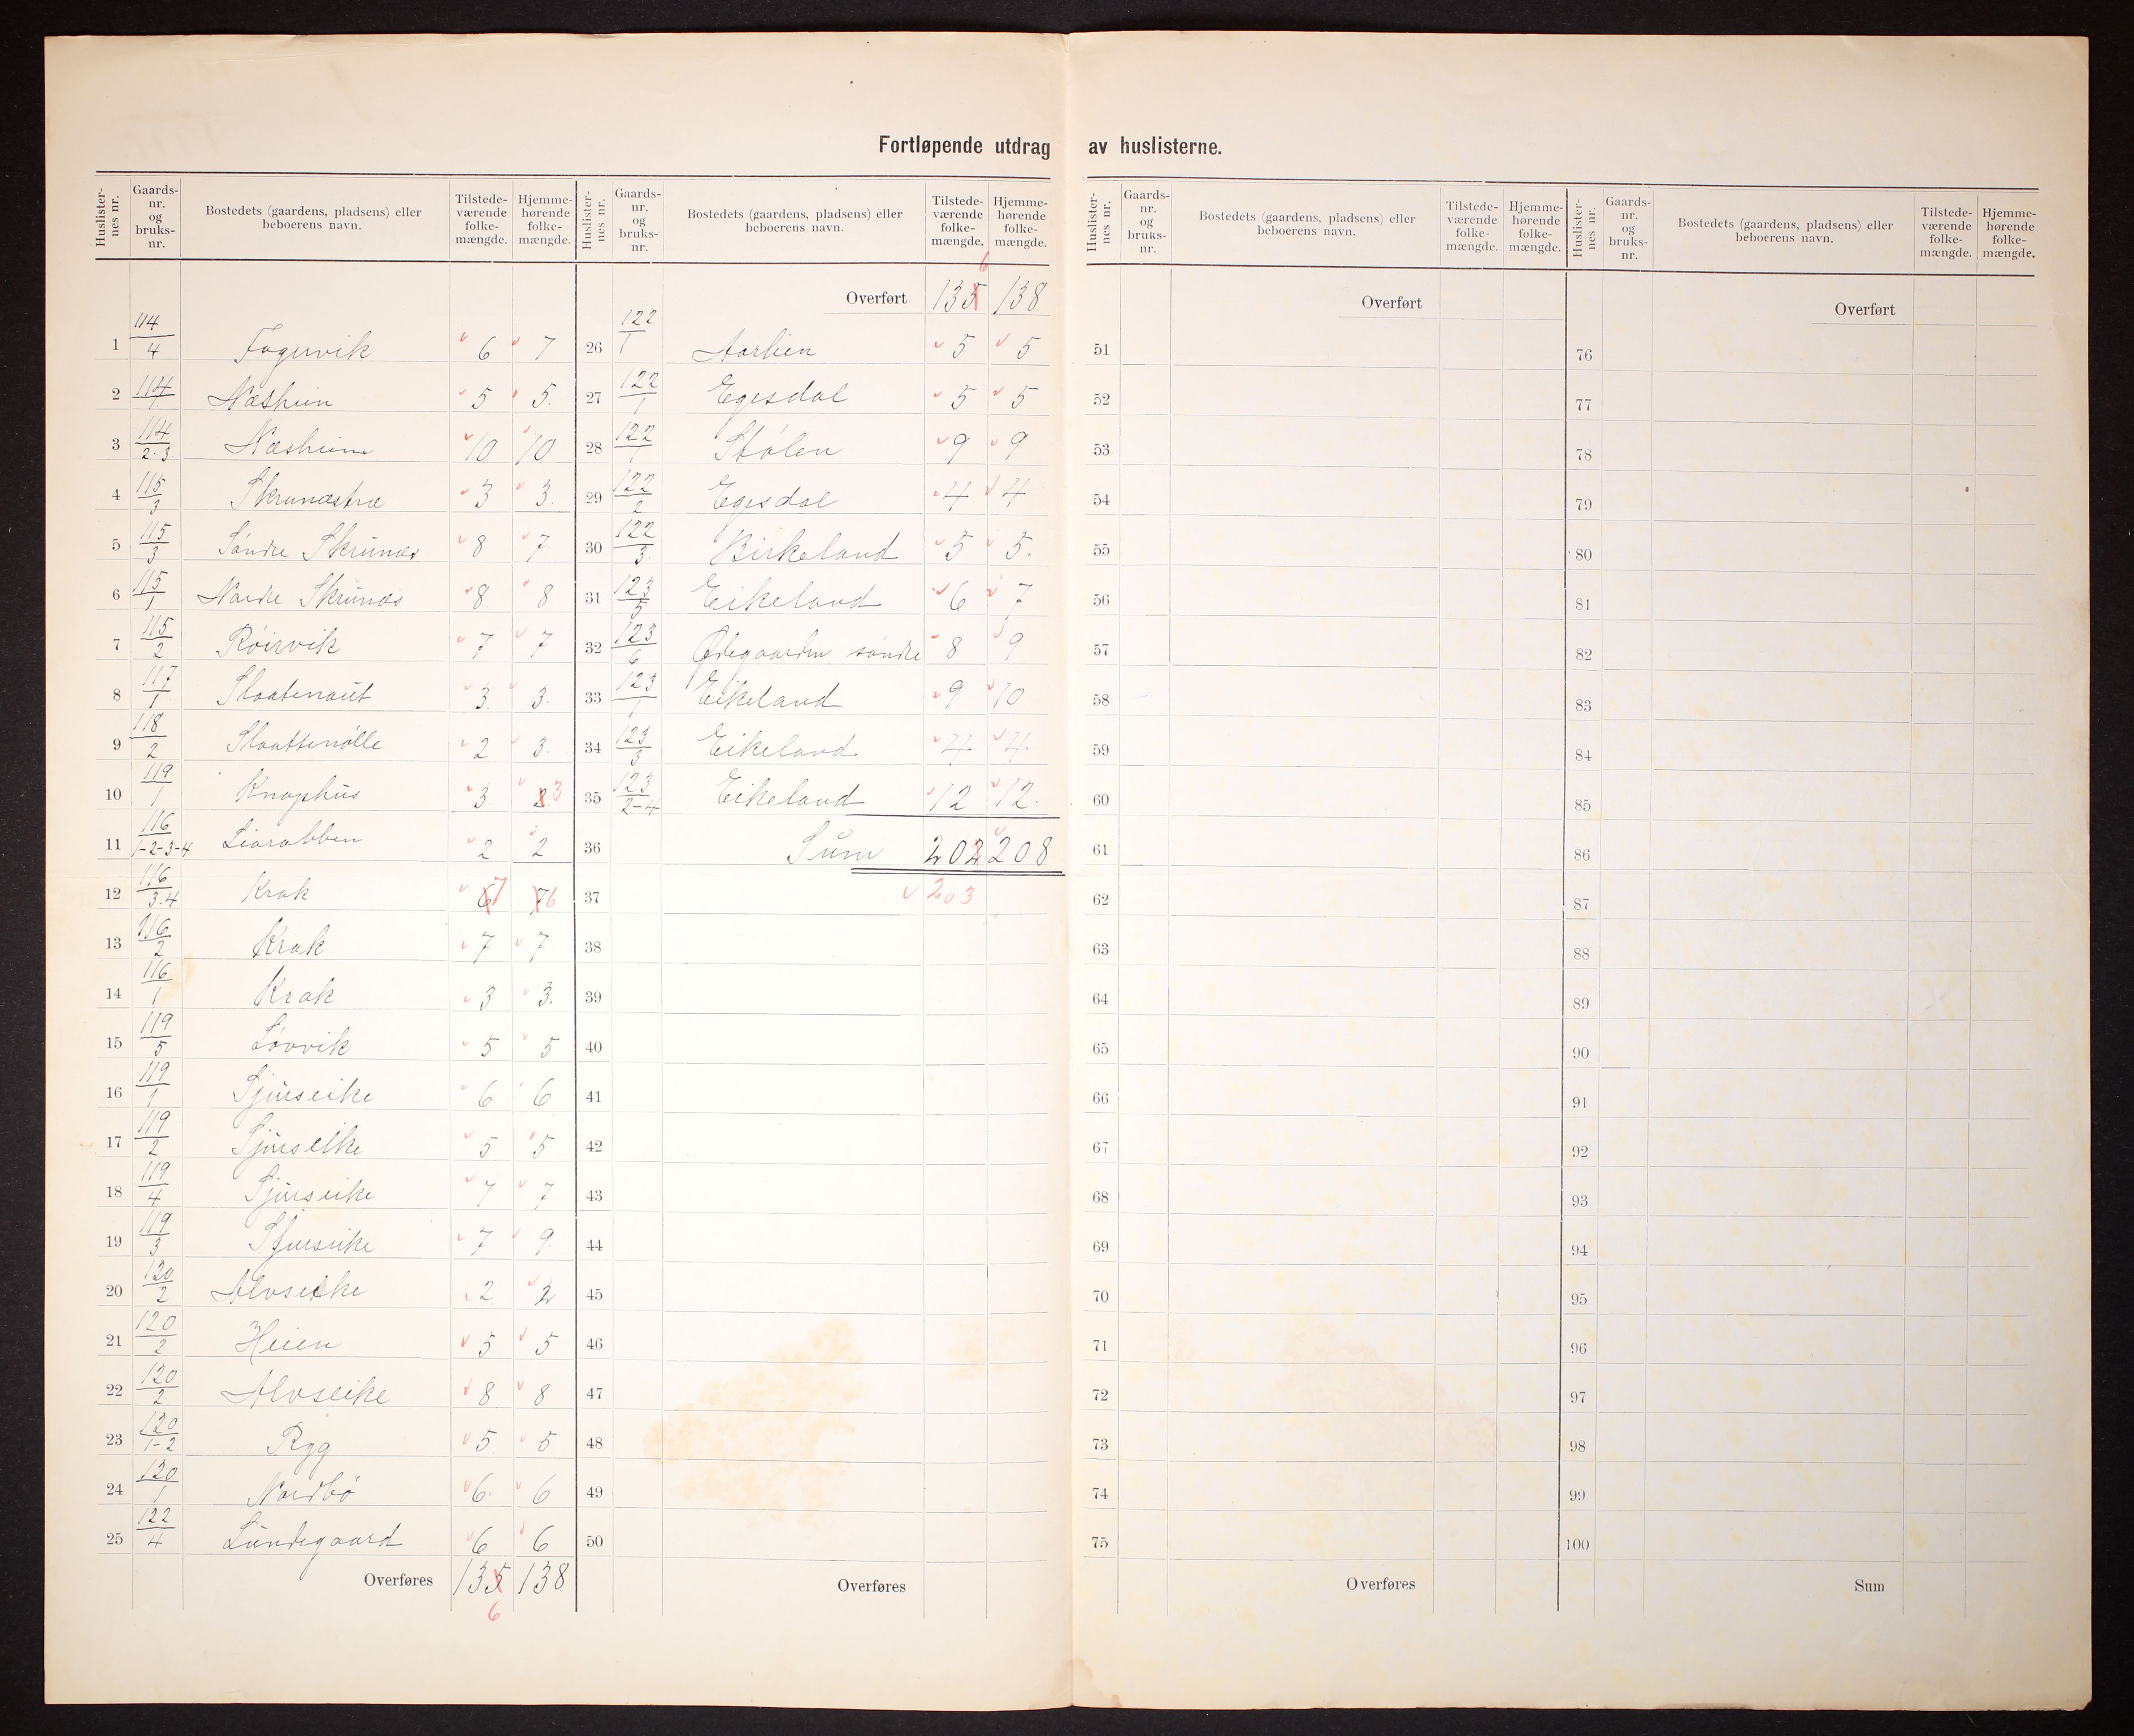 Fortløpende utdrag av huslisterne.
Huslister-nes nr. Gaards-nr. og bruks-nr. Bostedets (gaardens, pladsens) eller beboerens navn. Tilstede-værende folke-mængde. Hjemme-hørende folke-mængde.
1 114/4 Fagervik 6 7
2 114/1 Næsheim 5 5.
3 114/2.3. Næsheim 10 10
4 115/3 Skrunæstræ 3 3.
5 115/3 Söndre Skrunæs 8 7.
6 115/1 Nordre Skrunæs 8 8
7 115/2 Röirvik 7 7
8 117/1 Slaatenaut 3. 3.
9 118/2 Slaattenölle 2 3.
10 119/1 Knaphus 3. 2 3
11 116/1-2-3-4 Liarabben 2 2
12 116/3.4 Krak 6 7 7 6
13 116/2 Krak 7 7
14 116/1 Krak 3 3.
15 119/5 Lövvik 5 5
16 119/1 Sjurseike 6 6
17 119/2 Sjurseike 5 5
18 119/4 Sjurseike 7 7
19 119/3 Sjurseike 7 9.
20 120/2 Alvseike 2 2
21 120/2 Heien 5 5
22 120/2 Alvseike 8 8
23 120/1-2 Ryg 5 5
24 120/1 Nordbö 6. 6
25 122/4 Lundegaard 6 6
Overføres 135 138
6
Huslister-nes nr. Gaards-nr. og bruks-nr. Bostedets (gaardens, pladsens) eller beboerens navn. Tilstede-værende folke-mængde. Hjemme-hørende folke-mængde.
6
Overført 135 138
26 122/1 Aarlien 5 5
27 122/1 Egesdal 5 5
28 122/1 Stölen 9 9
29 122/2 Egesdal 4 4
30 122/3. Birkeland 5 5.
31 123/5 Eikeland 6 7
32 123/6 Ødegaarden söndre 8 9
33 123/1 Eikeland 9 10
34 123/3 Eikeland 4 4.
35 123/2-4 Eikeland 12 12.
36 Sum 202 208
37 203
38
39
40
41
42
43
44
45
46
47
48
49
50
Overføres
Huslister-nes nr. Gaards-nr. og bruks-nr. Bostedets (gaardens, pladsens) eller beboerens navn. Tilstede-værende folke-mængde. Hjemme-hørende folke-mængde.
Overført
51
52
53
54
55
56
57
58
59
60
61
62
63
64
65
66
67
68
69
70
71
72
73
74
75
Overføres
Huslister-nes nr. Gaards-nr. og bruks-nr. Bostedets (gaardens, pladsens) eller beboerens navn. Tilstede-værende folke-mængde. Hjemme-hørende folke-mængde.
Overført
76
77
78
79
80
81
82
83
84
85
86
87
88
89
90
91
92
93
94
95
96
97
98
99
100
Sum